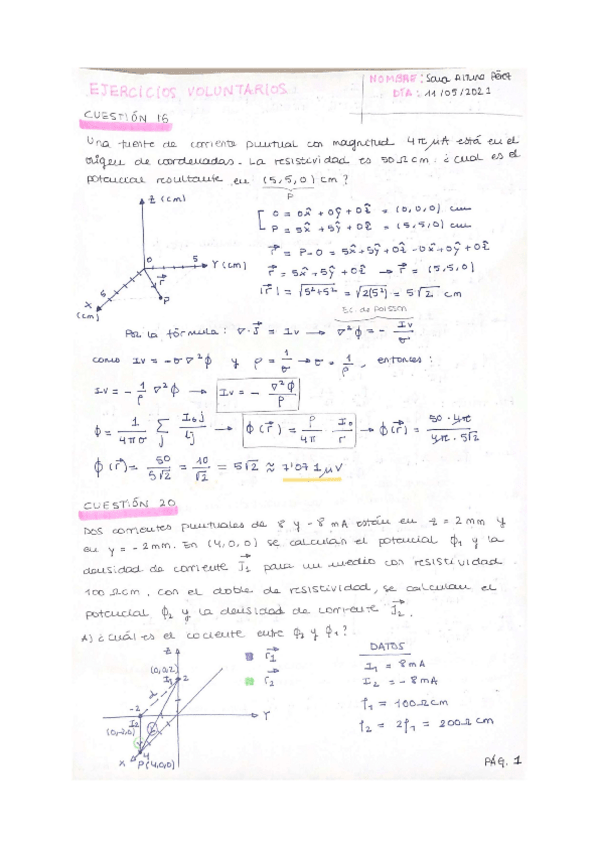 EJERCICIOS VOLUNTARIOS
NOMBRE: Sara
DÍA: 11/05/2021
CUESTIÓN 16
Una fuente de corriente puntual con magnitud 4π μA está en el
origen de coordenadas. La resistividad es 50 Ωcm. ¿cual es el
potencial resultante en (5,5,0) cm?
P
Z (cm)
O
5
Y (cm)
r⃗
P
5
X
(cm)
O = 0x̂ + 0ŷ + 0ẑ = (0,0,0) cm
P = 5x̂ + 5ŷ + 0ẑ = (5,5,0) cm
r⃗ = P-O = 5x̂+5ŷ+0ẑ -0x̂+0ŷ+0ẑ
r⃗ = 5x̂+5ŷ+0ẑ → r⃗ = (5,5,0)
|r⃗| = √5²+5² = √2(5²) = 5√2 cm
Ec. de Poisson
Por la fórmula: ∇·J⃗ = Iv → ∇²ϕ = - Iv/σ
como Iv = -σ∇²ϕ y ρ = 1/σ → σ = 1/ρ, entonces:
Iv = - 1/ρ ∇²ϕ → Iv = - ∇²ϕ/ρ
ϕ = 1/4πσ Σj I₀j/rj → ϕ(r⃗) = ρ/4π · I₀/r → ϕ(r⃗) = 50·4π/4π·5√2
ϕ(r⃗) = 50/5√2 = 10/√2 = 5√2 ≈ 7'071 μV
CUESTIÓN 20
Dos corrientes puntuales de 8 y -8 mA están en z = 2mm y
en y = -2mm. En (4,0,0) se calculan el potencial ϕ₁ y la
densidad de corriente J⃗₁ para un medio con resistividad
100 Ωcm, con el doble de resistividad, se calculan el
potencial ϕ₂ y la densidad de corriente J⃗₂.
A) ¿cuál es el cociente entre ϕ₂ y ϕ₁?
Z
(0,0,2)
I₁
2
-2
I₂
(0,-2,0)
Y
4
X
P(4,0,0)
r⃗₁
r⃗₂
DATOS
I₁ = 8mA
I₂ = -8mA
ρ₁ = 100Ωcm
ρ₂ = 2ρ₁ = 200Ωcm
PÁG. 1